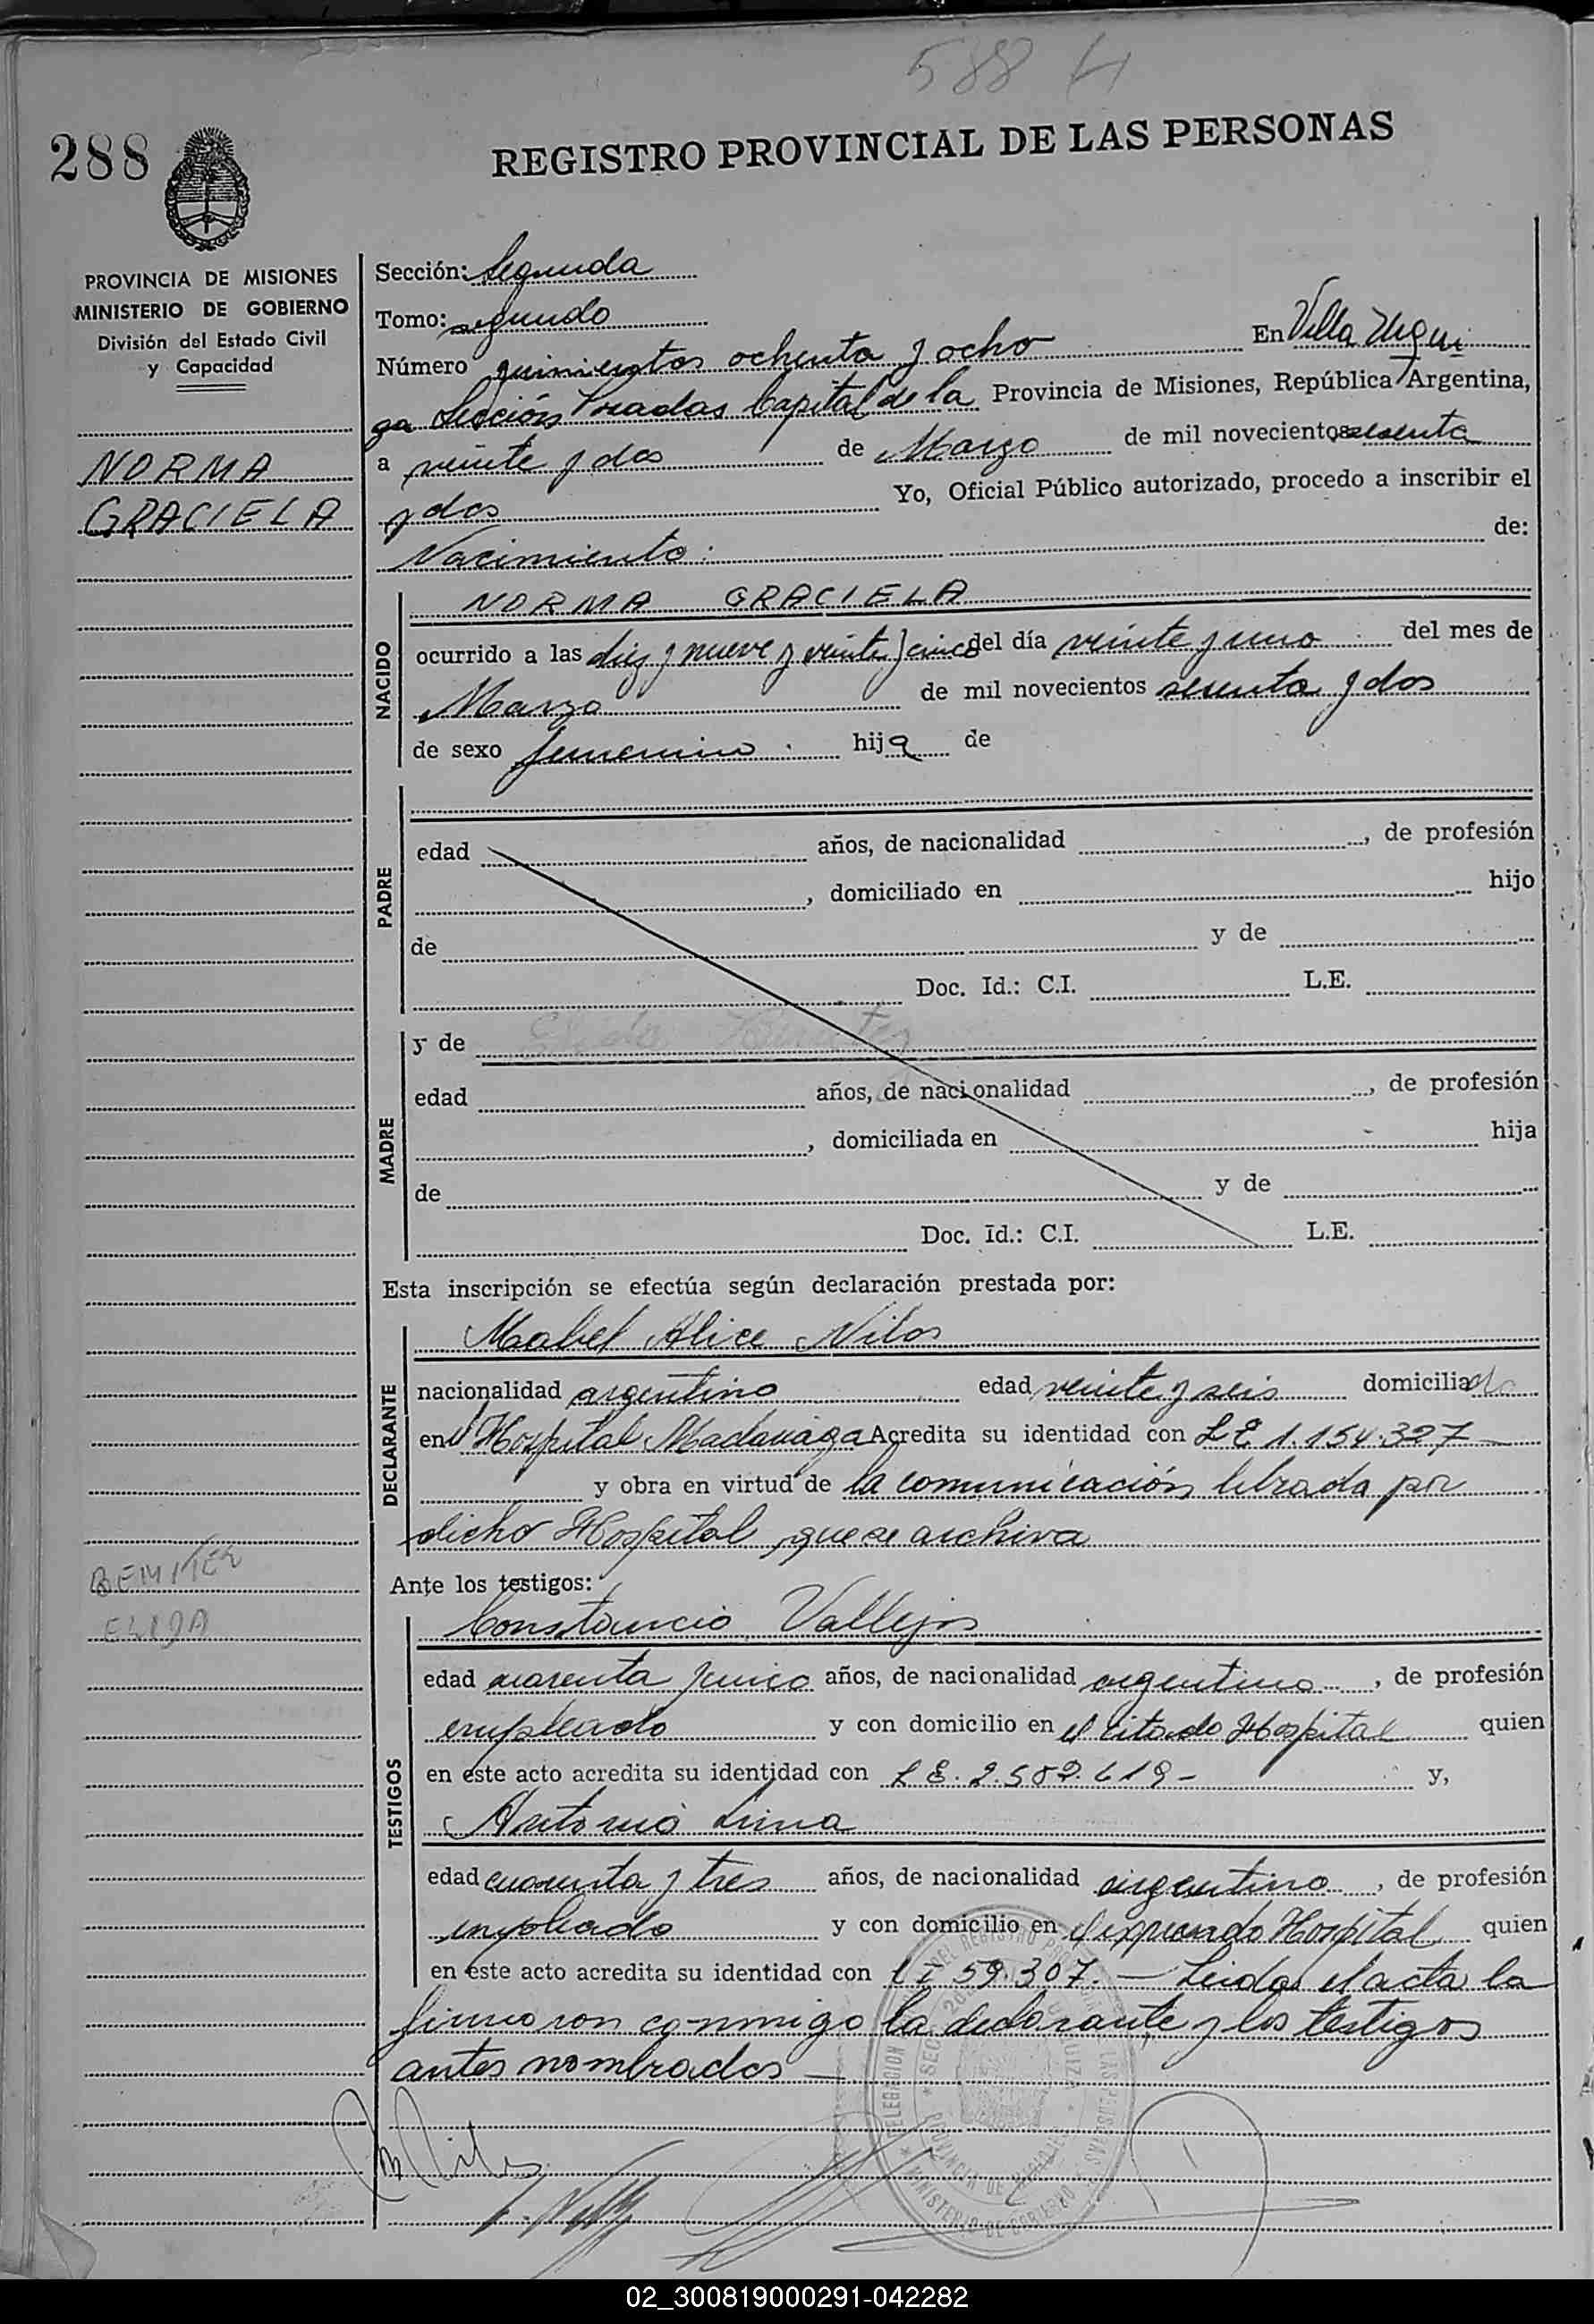 588 H
288
REGISTRO PROVINCIAL DE LAS PERSONAS
PROVINCIA DE MISIONES
MINISTERIO DE GOBIERNO
División del Estado Civil
y Capacidad
NORMA
GRACIELA
Sección: Segunda
Tomo: segundo
Número quinientos ochenta y ocho En Villa Urqui
za Sección Posadas Capital de la Provincia de Misiones, República Argentina,
a veinte y dos de Marzo de mil novecientos sesenta
y dos Yo, Oficial Público autorizado, procedo a inscribir el
Nacimiento: de:
NACIDO
NORMA GRACIELA
ocurrido a las diez y nueve y veinte y cinco del día veinte y uno del mes de
Marzo de mil novecientos sesenta y dos
de sexo femenino . hija de
PADRE
edad años, de nacionalidad , de profesión
, domiciliado en hijo
de y de
Doc. Id.: C.I. L.E.
MADRE
y de
edad años, de nacionalidad , de profesión
, domiciliada en hija
de y de
Doc. Id.: C.I. L.E.
Esta inscripción se efectúa según declaración prestada por:
DECLARANTE
Mabel Alice Nilos
nacionalidad argentino edad veinte y seis domiciliado
en el Hospital Madariaga Acredita su identidad con L E 1.154.327
y obra en virtud de la comunicación librada por
dicho Hospital que se archiva
BENITEZ
ELIDA
Ante los testigos:
TESTIGOS
Constancio Vallejos
edad cuarenta y cinco años, de nacionalidad argentino , de profesión
empleado y con domicilio en el citado Hospital quien
en este acto acredita su identidad con L E. 2.582.619- y,
Antonio Lima
edad cuarenta y tres años, de nacionalidad argentino , de profesión
empleado y con domicilio en el expresado Hospital quien
en este acto acredita su identidad con C I 59.307.- Leida el acta la
firmaron conmigo la declarante y los testigos
antes nombrados —
02_300819000291-042282